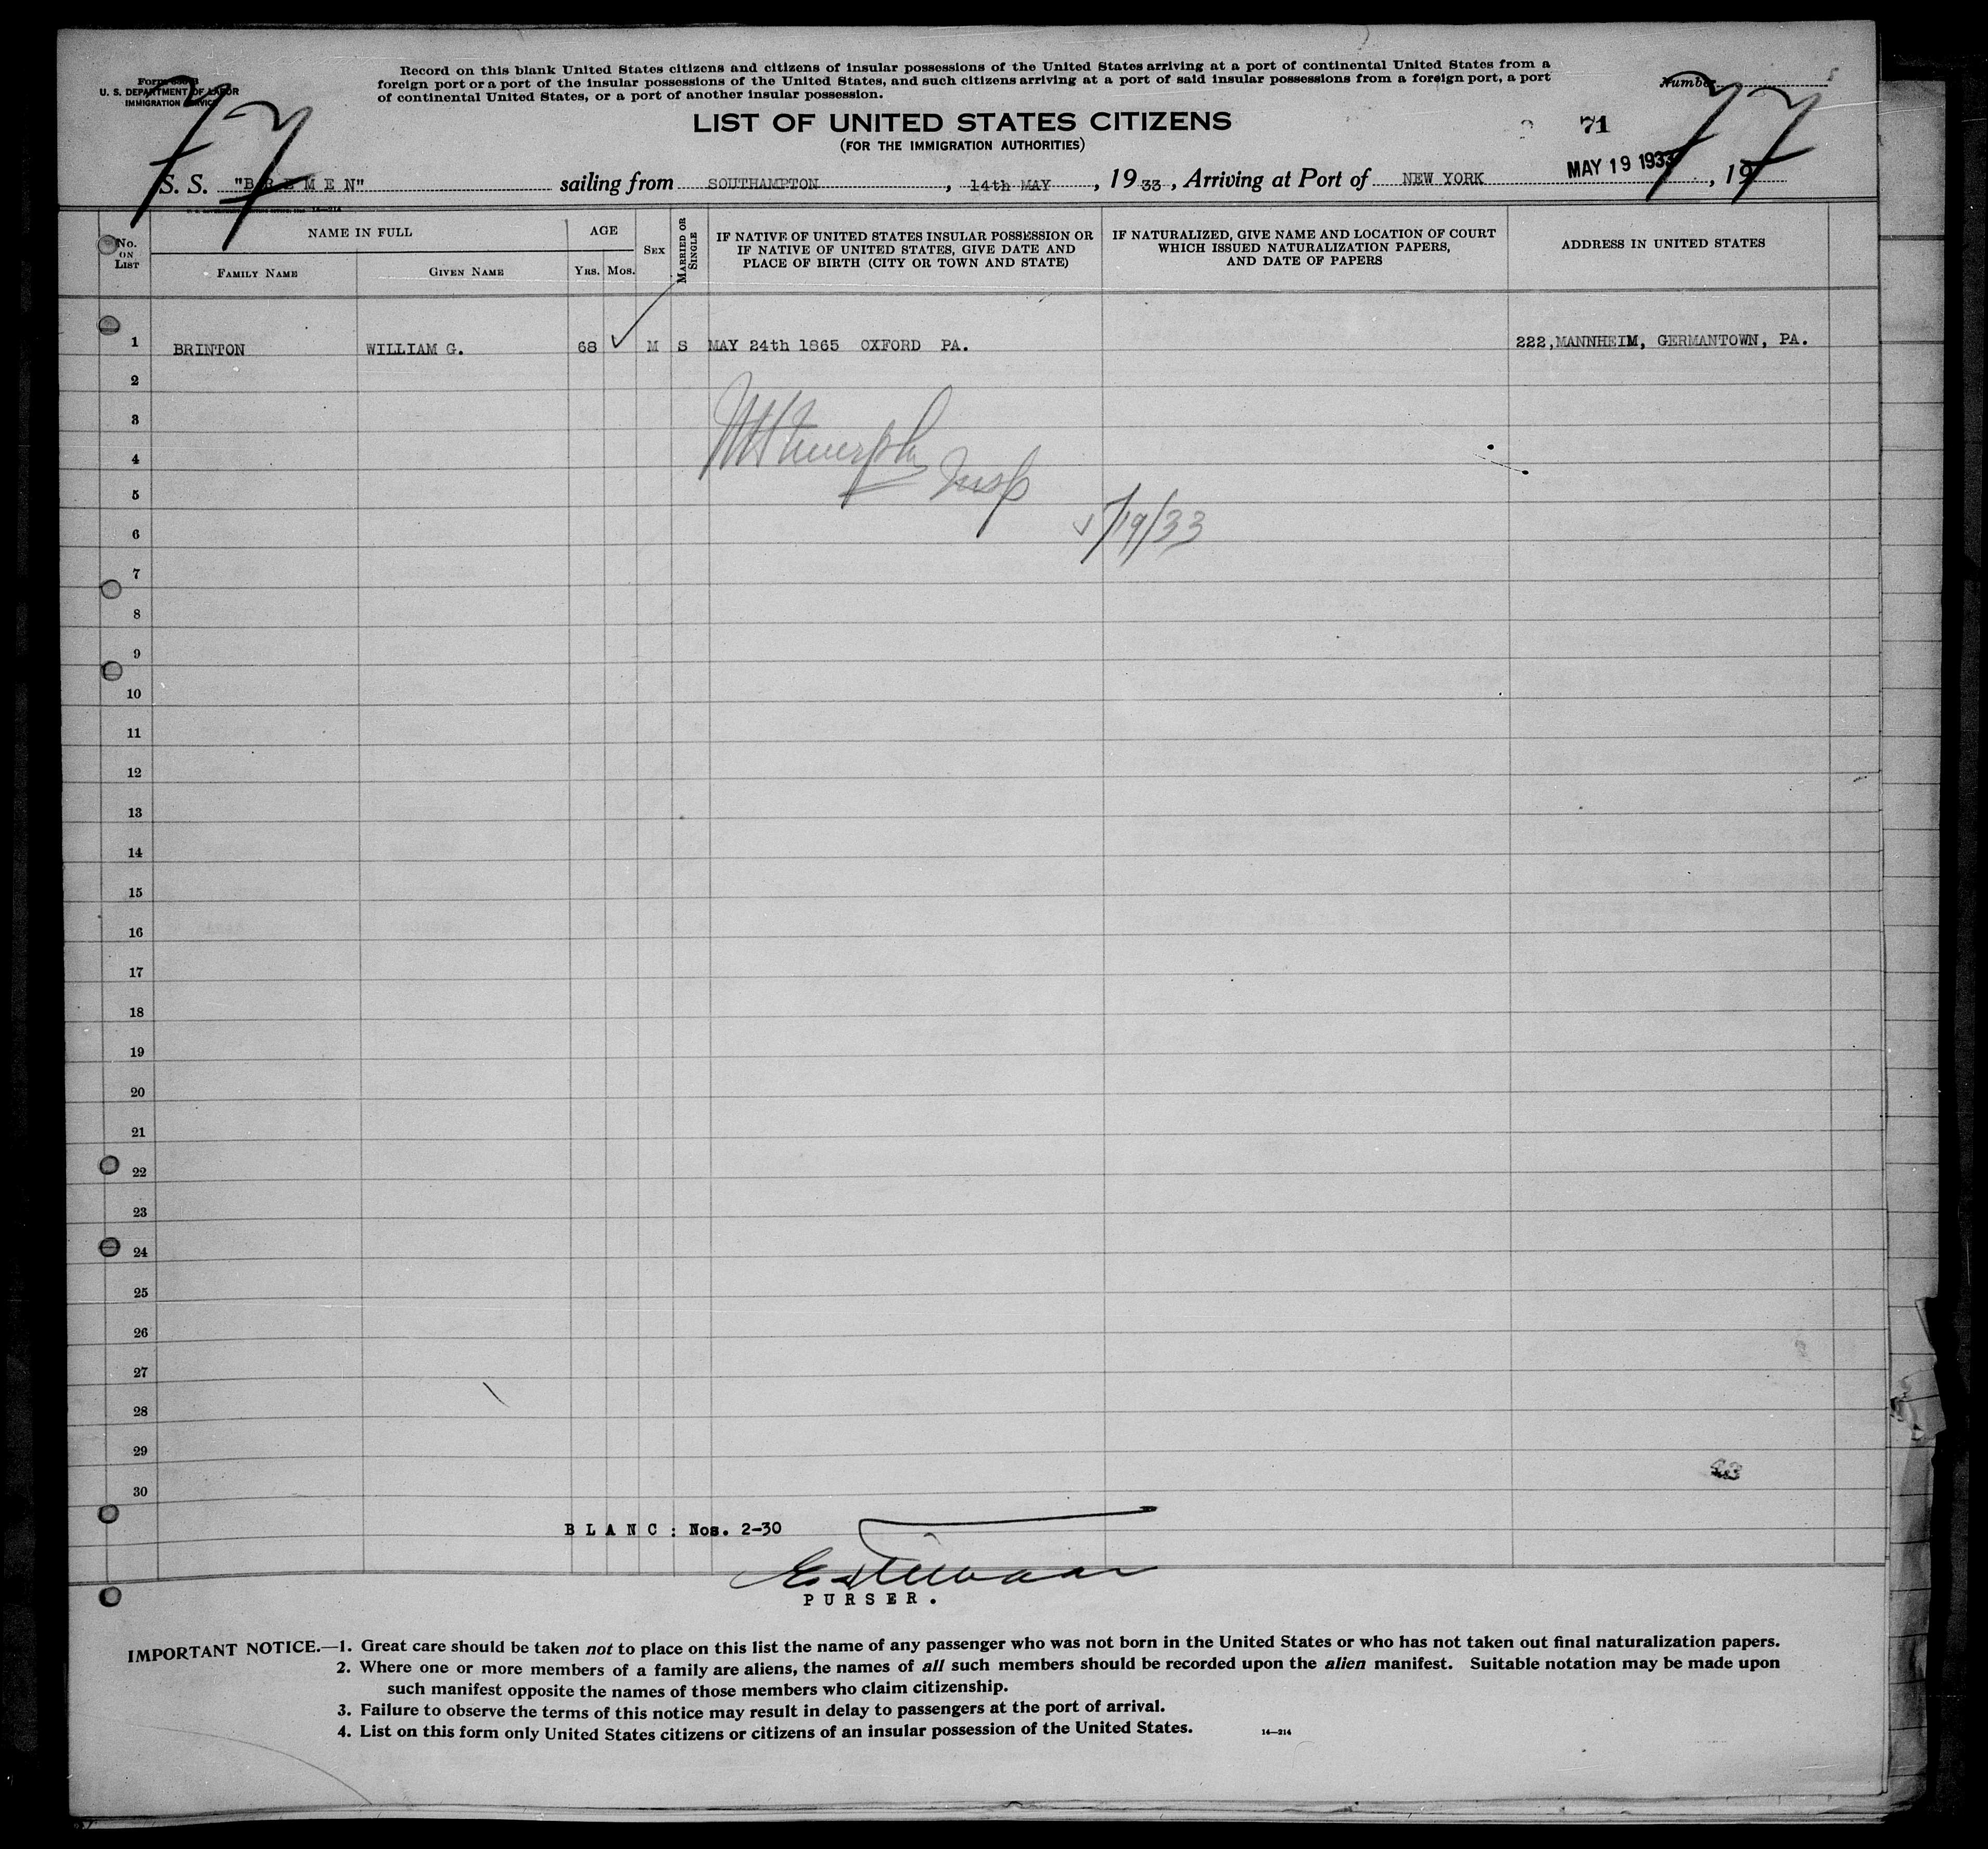 Record on this blank United States citizens and citizens of insular possessions of the United States arriving at a port of continental United States from a
foreign port or a port of the insular possessions of the United States, and such citizens arriving at a port of said insular possessions from a foreign port, a port
of continental United States, or a port of another insular possession.
Form
U. S. DEPARTMENT OF LABOR
IMMIGRATION SERVICE
Number
77
77
LIST OF UNITED STATES CITIZENS
(FOR THE IMMIGRATION AUTHORITIES)
71
S. S. "BREMEN" sailing from SOUTHAMPTON, 14th MAY, 1933, Arriving at Port of NEW YORK MAY 19 1933, 19
No. ON LIST
NAME IN FULL
FAMILY NAME
GIVEN NAME
AGE
YRS. MOS.
SEX
MARRIED OR SINGLE
IF NATIVE OF UNITED STATES INSULAR POSSESSION OR
IF NATIVE OF UNITED STATES, GIVE DATE AND
PLACE OF BIRTH (CITY OR TOWN AND STATE)
IF NATURALIZED, GIVE NAME AND LOCATION OF COURT
WHICH ISSUED NATURALIZATION PAPERS,
AND DATE OF PAPERS
ADDRESS IN UNITED STATES
1 BRINTON WILLIAM G. 68 M S MAY 24th 1865 OXFORD PA. 222, MANNHEIM, GERMANTOWN, PA.
2
3
4
Insp
5
5/19/33
6
7
8
9
10
11
12
13
14
15
16
17
18
19
20
21
22
23
24
25
26
27
28
29
43
30
BLANC: Nos. 2-30
PURSER.
IMPORTANT NOTICE.—1. Great care should be taken not to place on this list the name of any passenger who was not born in the United States or who has not taken out final naturalization papers.
2. Where one or more members of a family are aliens, the names of all such members should be recorded upon the alien manifest. Suitable notation may be made upon
such manifest opposite the names of those members who claim citizenship.
3. Failure to observe the terms of this notice may result in delay to passengers at the port of arrival.
4. List on this form only United States citizens or citizens of an insular possession of the United States. 14—214